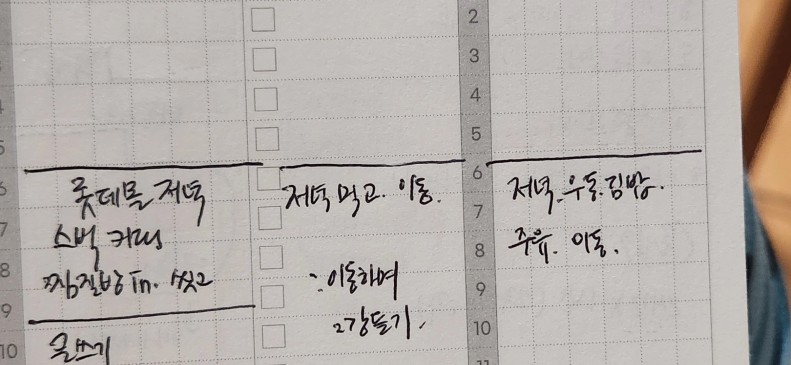 롯데몰 저녁
스벅 커피
찜질방 in. 씻고
글쓰기
저녁 먹고. 이동.
∴ 이동하며
2강 듣기.
저녁. 우동. 김밥.
주유. 이동.
5
6
7
8
9
10
2
3
4
5
6
7
8
9
10